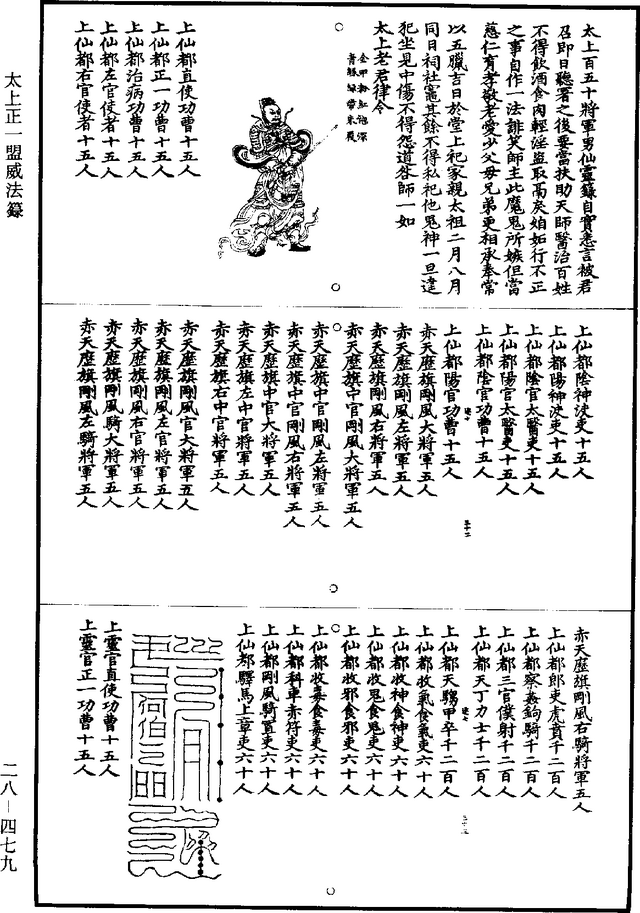 太上百五十將軍男仙靈籙自實恚言被君
召即日聽署之後要當扶助天師醫治百姓
不得飲酒食肉輕淫盜取高矣媢妬行不正
之事自作一法誹笑師主此魔鬼所嫉但當
慈仁育孝敬老愛少父母兄弟更相承奉常
以五臘吉日於堂上祀家親太祖二月八月
同日祠社竈其餘不得私祀他鬼神一旦違
犯坐見中傷不得怨道咎師一如
太上老君律令
上仙都直使功曹十五人
上仙都正一功曹十五人
上仙都治病功曹十五人
上仙都左官使者十五人
上仙都右官使者十五人
上仙都陰神決吏十五人
上仙都陽神決吏十五人
上仙都陰官太醫吏十五人
上仙都陽官太醫吏十五人
上仙都陰官功曹十五人
上仙都陽官功曹十五人
赤天歷旗剛風大將軍五人
赤天歷旗剛風左將軍五人
赤天歷旗剛風右將軍五人
赤天歷旗中官剛風大將軍五人
赤天歷旗中官剛風左將軍五人
赤天歷旗中官剛風右將軍五人
赤天歷旗中官大將軍五人
赤天歷旗左中官將軍五人
赤天歷旗右中官將軍五人
赤天歷旗剛風官大將軍五人
赤天歷旗剛風左官將軍五人
赤天歷旗剛風右官將軍五人
赤天歷旗剛風騎大將軍五人
赤天歷旗剛風左騎將軍五人
赤天歷旗剛風右騎將軍五人
上仙都郎吏虎賁千二百人
上仙都察姦鉤騎千二百人
上仙都三官僕射千二百人
上仙都天丁力士千二百人
上仙都天騶甲卒千二百人
上仙都收氣食氣吏六十人
上仙都收神食神吏六十人
上仙都收鬼食鬼吏六十人
上仙都收邪食邪吏六十人
上仙都收毒食毒吏六十人
上仙都科車赤符吏六十人
上仙都剛風騎置吏六十人
上仙都驛馬上章吏六十人
上靈官直使功曹十五人
上靈官正一功曹十五人
太上正一盟威法籙
二八—四七九